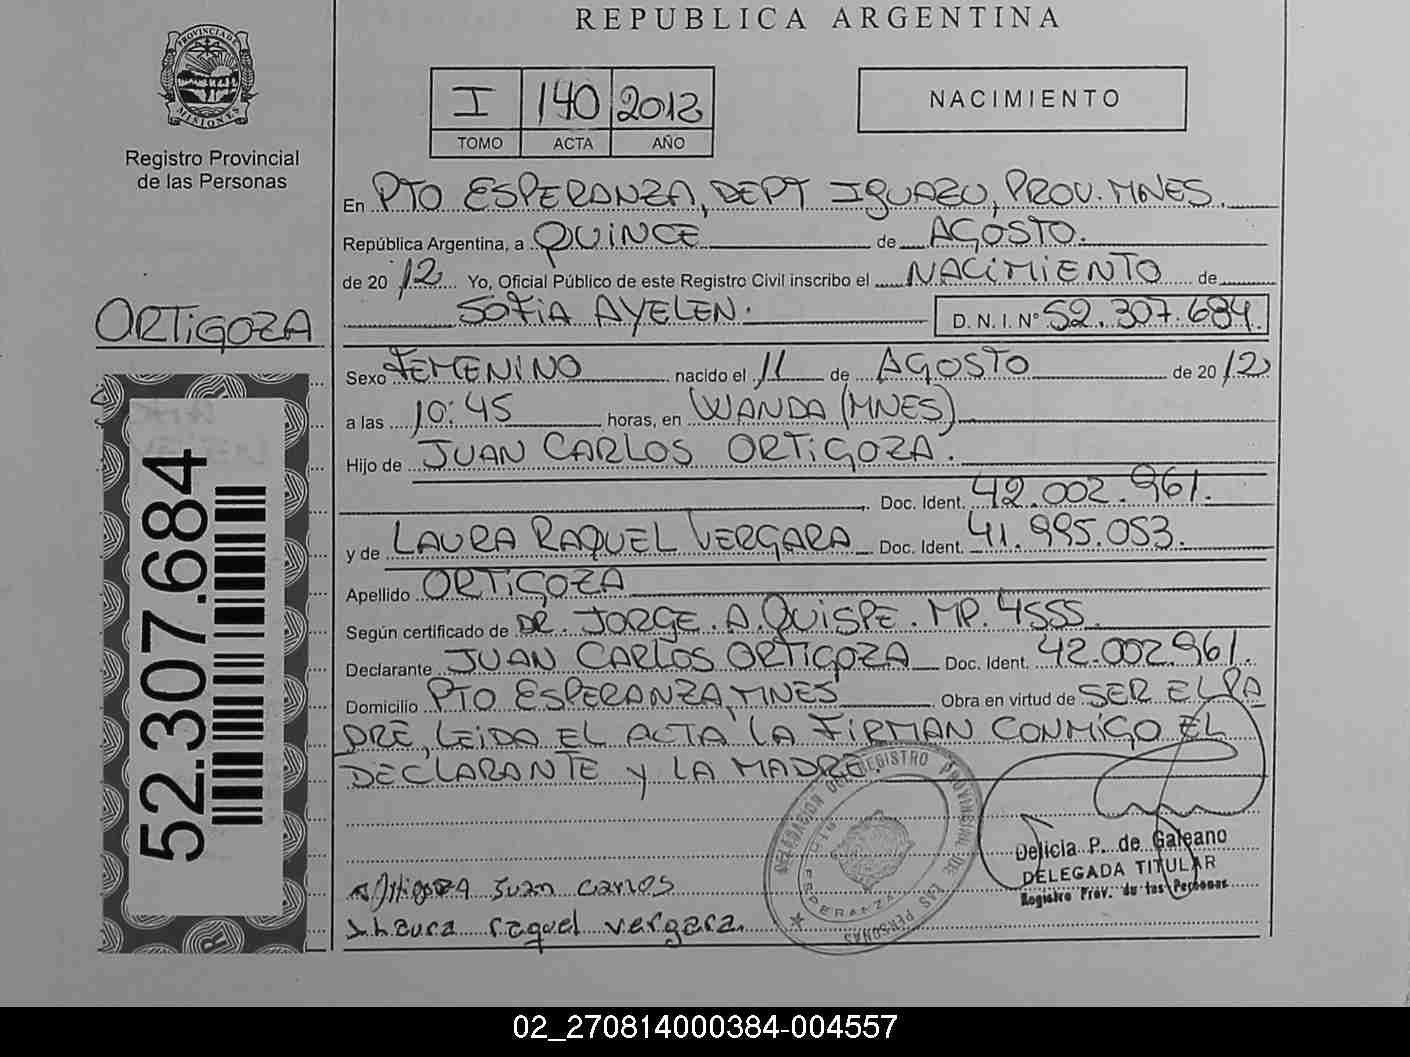 REPUBLICA ARGENTINA
PROVINCIA DE MISIONES
Registro Provincial
de las Personas
I 140 2012
TOMO ACTA AÑO
NACIMIENTO
En PTO ESPERANZA, DEPT IGUAZU, PROV. MNES
República Argentina, a QUINCE de AGOSTO.
de 20 12 Yo, Oficial Público de este Registro Civil inscribo el NACIMIENTO de
SOFIA AYELEN.
D. N. I. Nº 52.307.684.
ORTIGOZA
Sexo FEMENINO nacido el 11 de AGOSTO de 20 12
a las 10:45 horas, en WANDA (MNES)
Hijo de JUAN CARLOS ORTIGOZA.
Doc. Ident. 42.002.961.
y de LAURA RAQUEL VERGARA Doc. Ident. 41.995.053.
Apellido ORTIGOZA
Según certificado de DR. JORGE. A. QUISPE. MP. 4555.
Declarante JUAN CARLOS ORTIGOZA Doc. Ident. 42.002.961.
Domicilio PTO ESPERANZA, MNES Obra en virtud de SER EL PA
DRE, LEIDA EL ACTA LA FIRMAN CONMIGO EL
DECLARANTE Y LA MADRE.
52.307.684
DELEGACION DEL REGISTRO PROVINCIAL DE LAS PERSONAS
ESPERANZA
Delicia P. de Galeano
DELEGADA TITULAR
Registro Prov. de las Personas
Ortigoza Juan Carlos
Laura raquel vergara
02_270814000384-004557